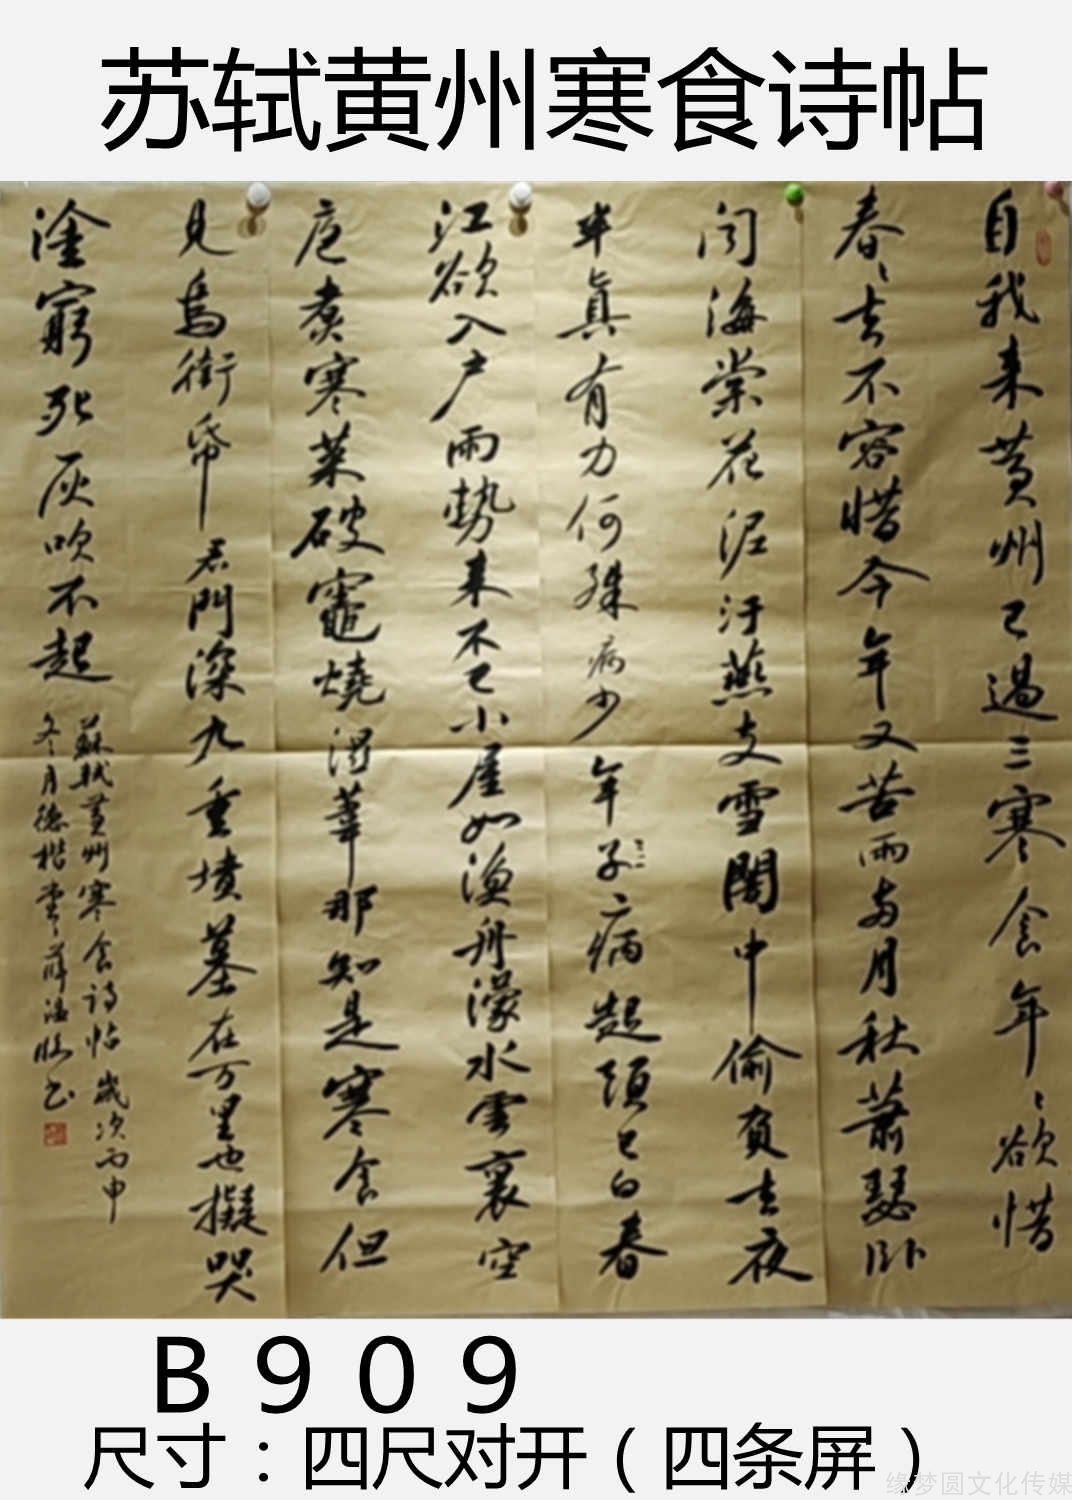 苏轼黄州寒食诗帖
自我来黄州已過三寒食年〻欲惜
春〻去不容惜今年又苦雨兩月秋蕭瑟卧
闻海棠花泥汙燕支雪闇中偷負去夜
半真有力何殊病少年子病起頭已白春
江欲入户雨勢来不已小屋如渔舟濛水雲裏空
庖煮寒菜破竈燒濕葦那知是寒食但
見烏銜帋君門深九重墳墓在万里也擬哭
塗窮死灰吹不起
蘇軾黄州寒食诗帖歲次丙申
冬月德楷堂
B909
尺寸：四尺对开（四条屏）
缘梦圆文化传媒